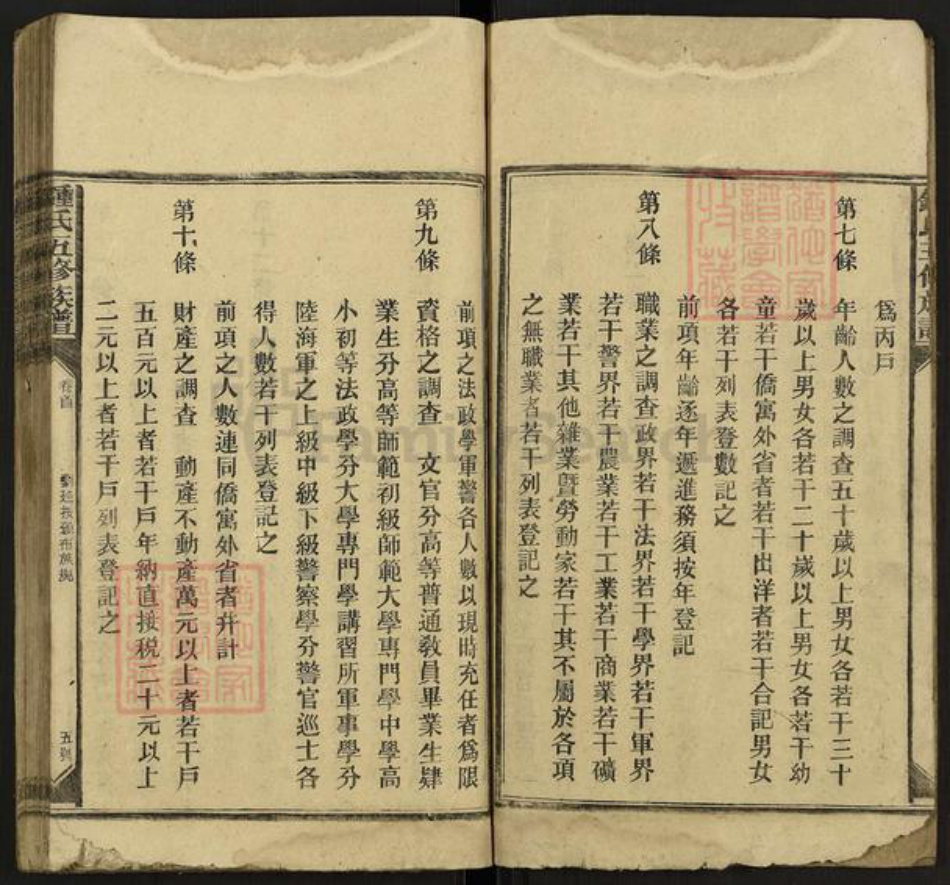 爲丙戶
第七條 年齡人數之調查五十歲以上男女各若干三十
歲以上男女各若干二十歲以上男女各若干幼
童若干僑寓外省者若干出洋者若干合記男女
各若干列表登數記之
前項年齡逐年遞進務須按年登記
第八條 職業之調查政界若干法界若干學界若干軍界
若干警界若干農業若干工業若干商業若干礦
業若干其他雜業曁勞動家若干其不屬於各項
之無職業者若干列表登記之
前項之法政學軍警各人數以現時充任者爲限
第九條 資格之調查 文官分高等普通敎員畢業生肄
業生分高等師範初級師範大學專門學中學高
小初等法政學分大學專門學講習所軍事學分
陸海軍之上級中級下級警察學分警官巡士各
得人數若干列表登記之
前項之人數連同僑寓外省者幷計
第十條 財產之調查 動產不動產萬元以上者若干戶
五百元以上者若干戶年納直接稅二十元以上
二元以上者若干戶列表登記之
鍾氏五修族譜
卷首
五